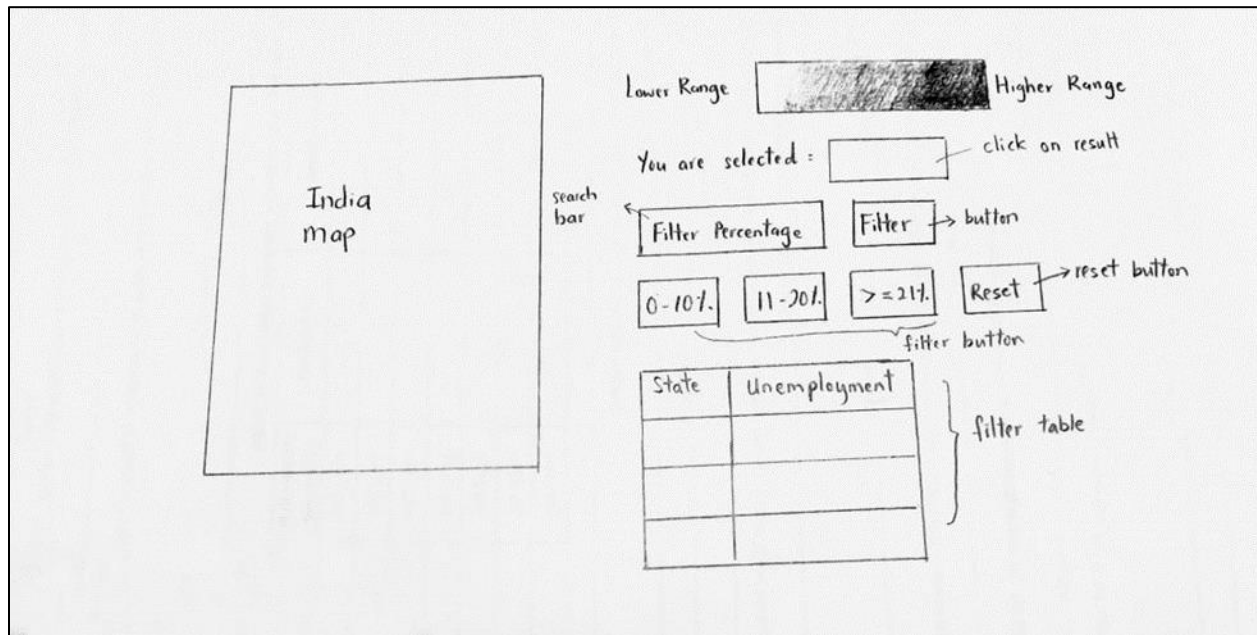 India
map
Lower Range
Higher Range
You are selected :
click on result
search
bar
Filter Percentage
Filter
button
0-10%.
11-20%.
>=21%.
Reset
reset button
filter button
State
Unemployment
filter table